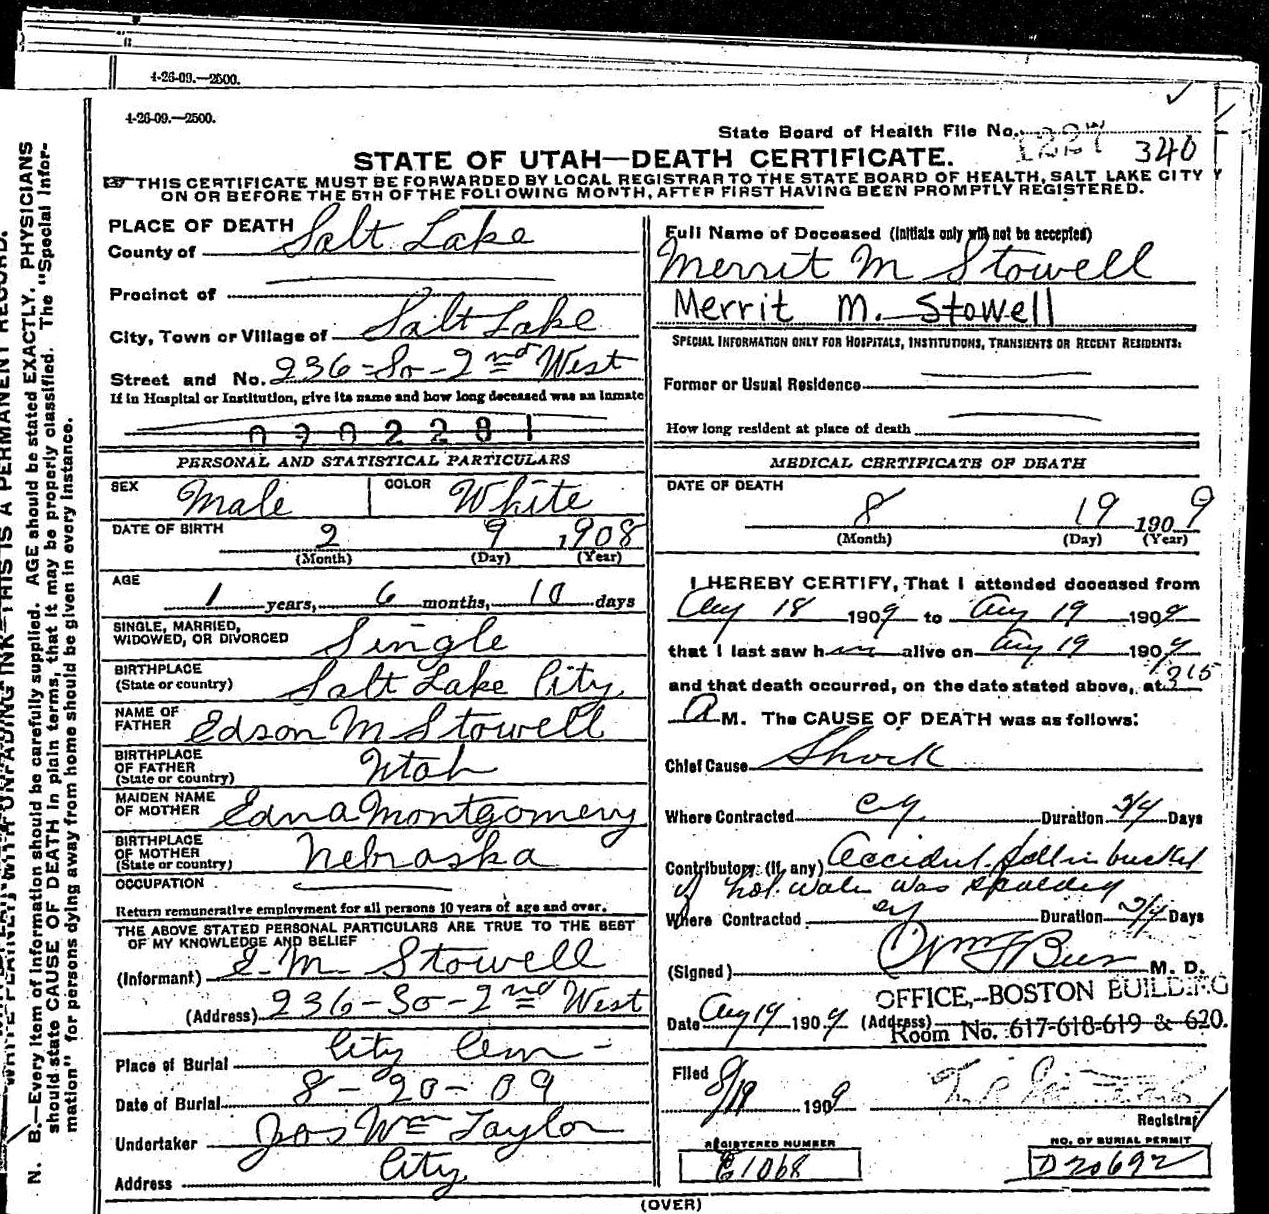 4-26-09.—2500.
4-26-09.—2500.
State Board of Health File No. 1227 340
STATE OF UTAH—DEATH CERTIFICATE.
THIS CERTIFICATE MUST BE FORWARDED BY LOCAL REGISTRAR TO THE STATE BOARD OF HEALTH, SALT LAKE CITY
ON OR BEFORE THE 5TH OF THE FOLLOWING MONTH, AFTER FIRST HAVING BEEN PROMPTLY REGISTERED.
PLACE OF DEATH
County of Salt Lake
Precinct of
City, Town or Village of Salt Lake
Street and No. 236-So-2nd West
If in Hospital or Institution, give its name and how long deceased was an inmate
0702281
Full Name of Deceased (Initials only will not be accepted)
Merrit M Stowell
Merrit M. Stowell
SPECIAL INFORMATION ONLY FOR HOSPITALS, INSTITUTIONS, TRANSIENTS OR RECENT RESIDENTS:
Former or Usual Residence
How long resident at place of death
PERSONAL AND STATISTICAL PARTICULARS
SEX Male COLOR White
DATE OF BIRTH 2 9 1908
(Month) (Day) (Year)
AGE 1 years, 6 months, 10 days
SINGLE, MARRIED,
WIDOWED, OR DIVORCED Single
BIRTHPLACE
(State or country) Salt Lake City
NAME OF
FATHER Edson M Stowell
BIRTHPLACE
OF FATHER
(State or country) Utah
MAIDEN NAME
OF MOTHER Edna Montgomery
BIRTHPLACE
OF MOTHER
(State or country) Nebraska
OCCUPATION
Return remunerative employment for all persons 10 years of age and over.
THE ABOVE STATED PERSONAL PARTICULARS ARE TRUE TO THE BEST
OF MY KNOWLEDGE AND BELIEF
(Informant) E. M. Stowell
(Address) 236-So-2nd West
Place of Burial City Cem-
Date of Burial 8-20-09
Undertaker Jos Wm Taylor
Address City
MEDICAL CERTIFICATE OF DEATH
DATE OF DEATH
8 19 1909
(Month) (Day) (Year)
I HEREBY CERTIFY, That I attended deceased from
Aug 18 1909 to Aug 19 1909
that I last saw him alive on Aug 19 1909
and that death occurred, on the date stated above, at 315
A M. The CAUSE OF DEATH was as follows:
Chief Cause Shock
Where Contracted Cy. Duration 3/4 Days
Contributory (if any) Accident. fell in bucket
of hot water was scalded
Where Contracted Cy Duration 3/4 Days
(Signed) M. D.
OFFICE,-BOSTON BUILDING
Date Aug 19 1909 (Address) Room No. 617-618-619 & 620.
Filed
8/19 1909
Registrar
REGISTERED NUMBER
E1068
NO. OF BURIAL PERMIT
D20692
(OVER)
N. B.—Every item of information should be carefully supplied. AGE should be stated EXACTLY. PHYSICIANS
should state CAUSE OF DEATH in plain terms, that it may be properly classified. The "Special Infor-
mation" for persons dying away from home should be given in every instance.
WRITE PLAINLY WITH UNFADING INK—THIS IS A PERMANENT RECORD.